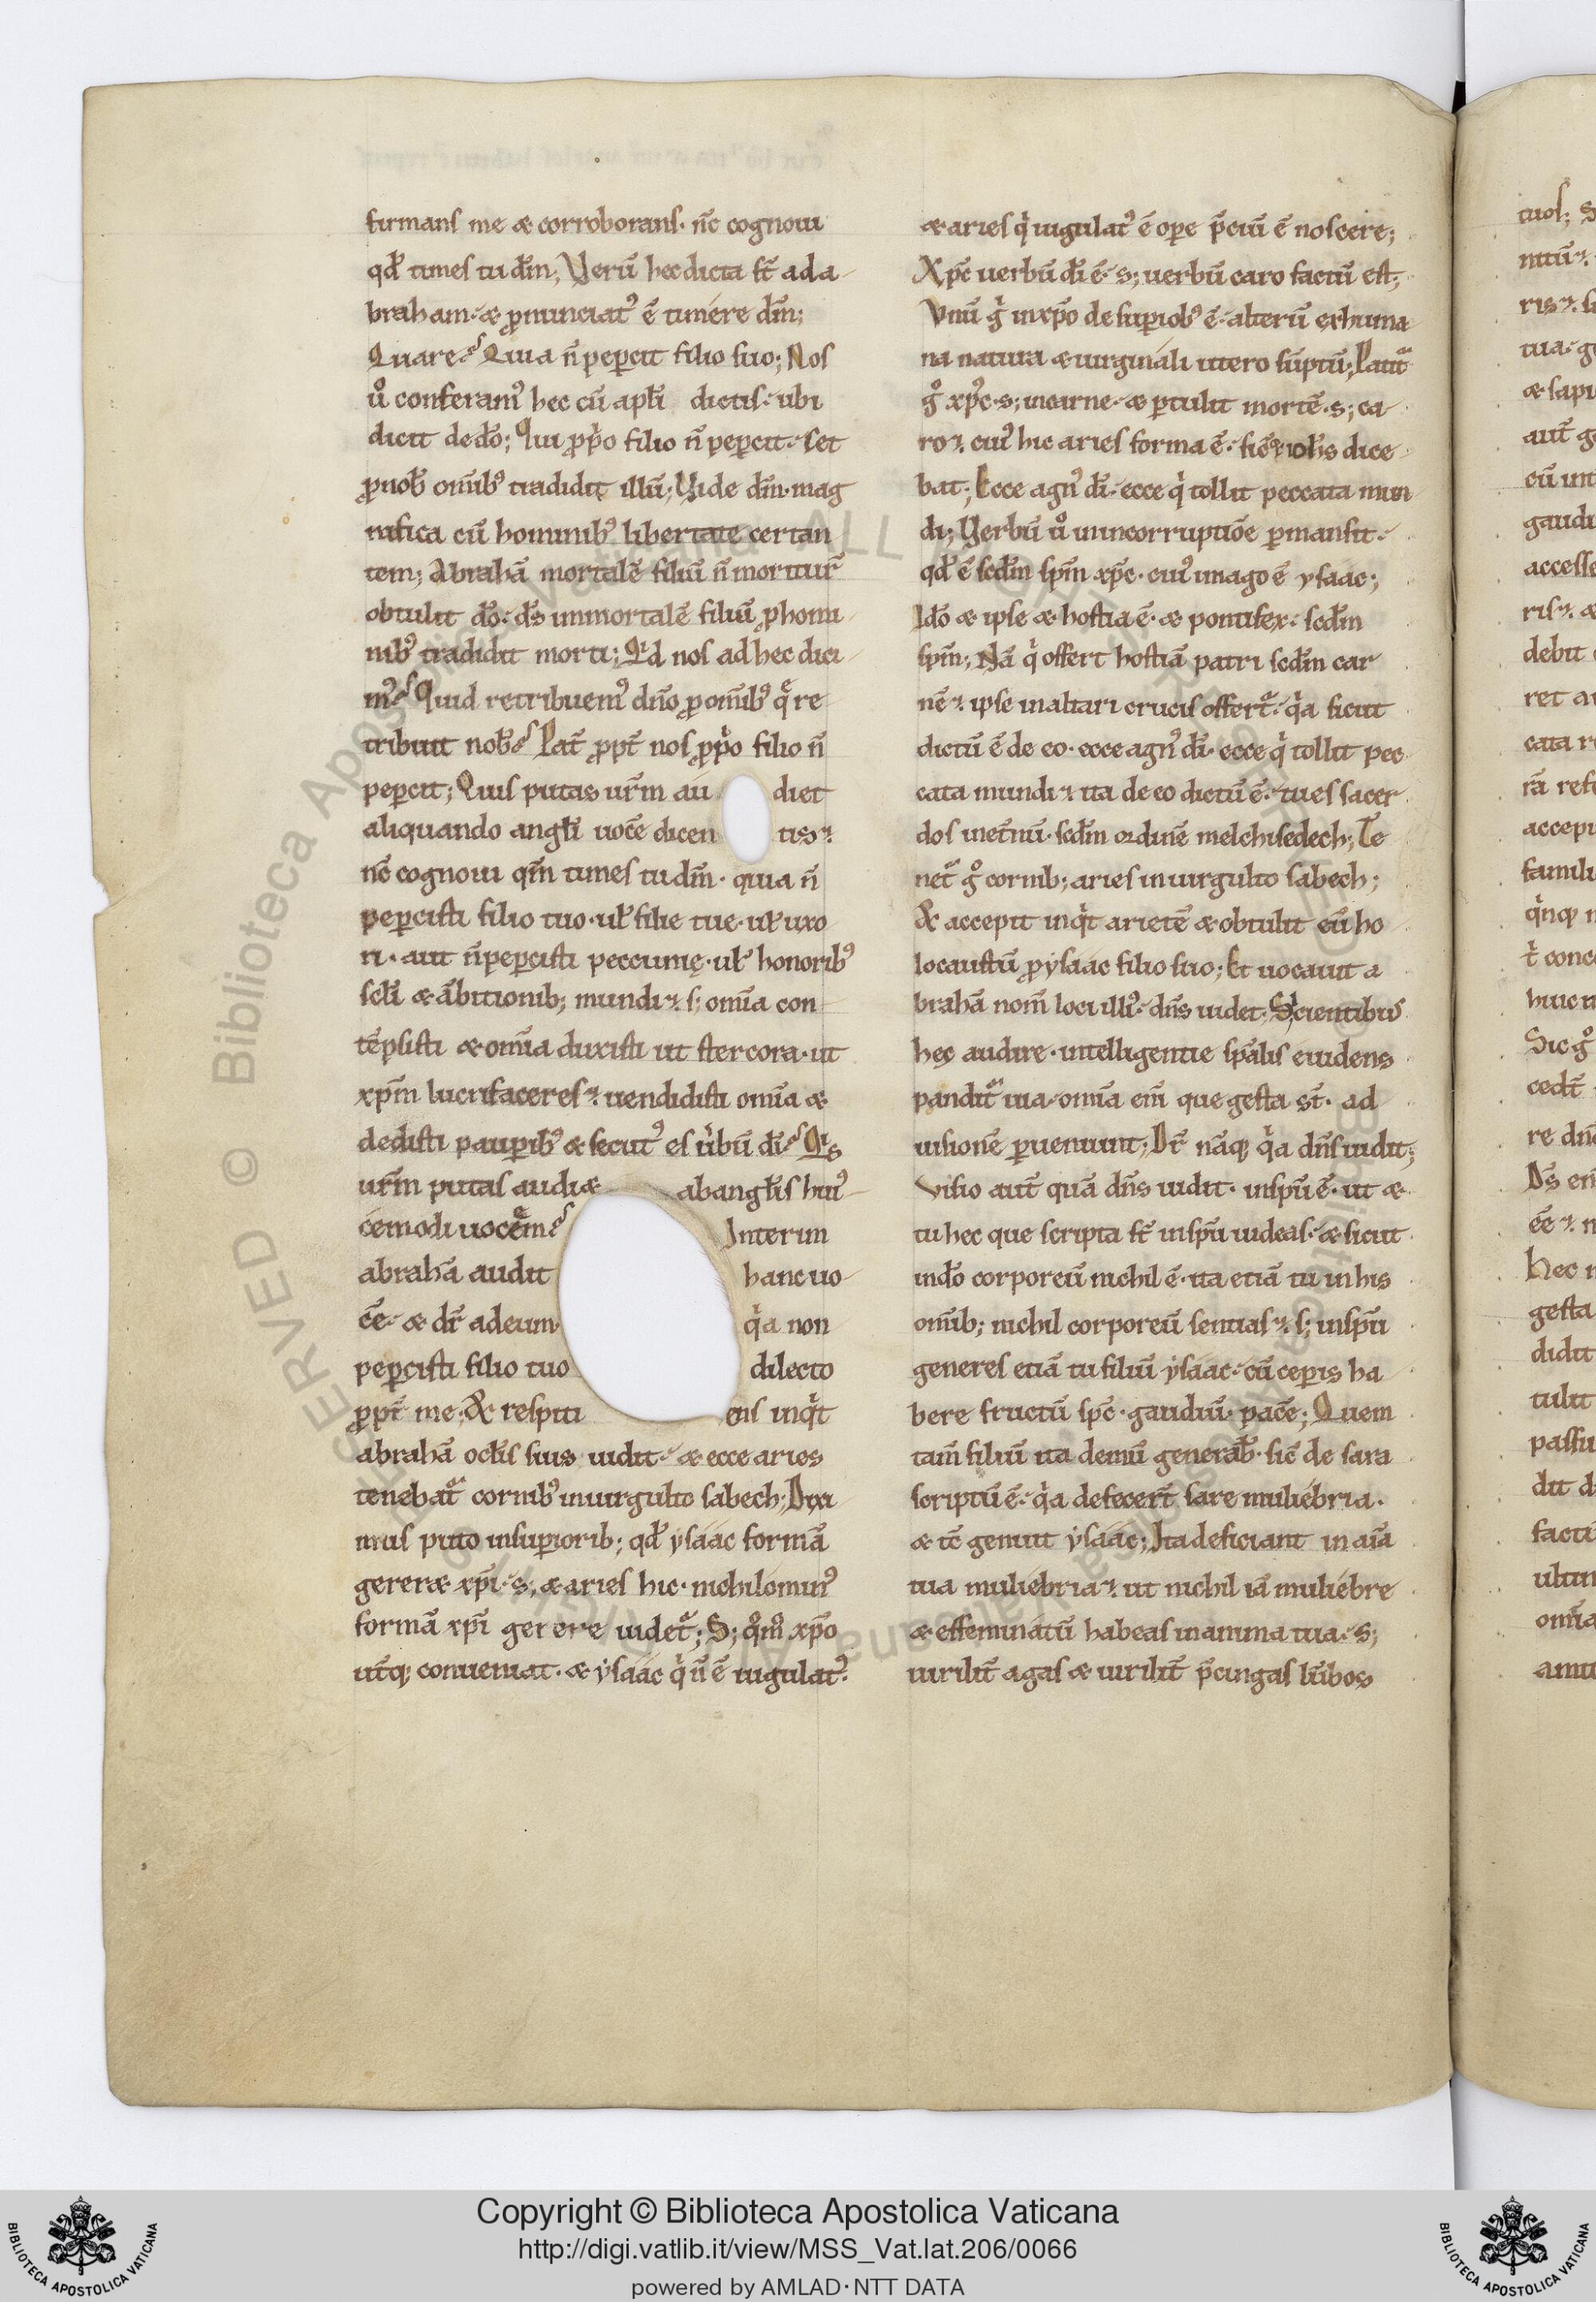 firmans me & corroborans. nc̄ cognoui
qd̄ times tu dm̄; Verū hec dicta st̄ ad a-
braham. & ꝓnunciatꝰ ē timere dm̄;
Quare? Quia n̄ peꝑcit filio suo; Nos
ů conferamꝰ hec cū apłi dictis. ubi
dicit de do̅; Qui ꝓpͥo filio n̄ peꝑcit. set
ꝓ nob̄ om̄ibꝰ tradidit illū; Vide dm̄. mag
nifica cū hominibꝰ libertate certan
tem; Abrahā mortalē filiū n̄ moritur̄
obtulit do̅. ds̄ immortalē filiū ꝓ homi-
nibꝰ tradidit morti; Qͥd nos ad hec dici-
mꝰ? Quid retribuemꝰ dn̄o ꝓ om̄ibꝰ q̄ re
tribuit nob̄? Pat̄ ꝓpt̄ nos ꝓpͥo filio n̄
peꝑcit; Quis putas ur̄m au diet
aliquando angłi uocē dicen tis.
nc̄ cognoui qm̄ times tu dm̄. quia n̄
peꝑcisti filio tuo. uł filie tue. uł uxo
ri. aut n̄ peꝑcisti peccunię. uł honoribꝰ
scłi & ābitionib; mundi. s; om̄ia con-
tēpsisti & om̄ia duxisti ut stercora. ut
xpm̄ lucrifaceres. uendidisti om̄ia &
dedisti pauꝑibꝰ & secutꝰ es uͥbū di̅? Qͥs
ur̄m putas audi& ab angłis huiꝰ-
cemodi uocem?
Interim
abrahā audit hanc uo-
cē. & dr̄ ad eum. qͥa non
peꝑcisti filio tuo dilecto
ꝓpt̄ me; & respiti ens inqͥt
abrahā ocłis suis uidit. & ecce aries
tenebat̃ cornibꝰ in uirgulto sabech; Dixi
mus puto in suꝑiorib; qd̄ ysaac formā
gerer& xpi̅. s; & aries hic. nichilominꝰ
formā xpi̅ gerere uidet̃; S; qͦmͦ xpo̅
ut̄q; conueniat. & ysaac qͥ n̄ ē iugulatꝰ.
& aries qͥ iugulatꝰ ē oꝑe p̄ciū ē noscere;
Xpc̄ uerbū di̅ ē. s; uerbū caro factū est;
Vnū gͥ in xpo̅ de suꝑiobꝰ ē. alterū ex huma
na natura & uirginali utero sūptū; Patit̃
gͦ xpc̄. s; in carne. & ꝑtulit mortē. s; ca-
ro. cuiꝰ hic aries forma ē. sic̄ & ioh̄s dice-
bat; Ecce agnꝰ di̅. ecce qͥ tollit peccata mun
di; Verbū uͦ in incorruptiōe ꝑmansit.
qd̄ ē scd̄m spm̄ xpc̄. cuiꝰ imago ē ysaac;
Ido̅ & ipse & hostia ē. & pontifex. scd̄m
spm̄; Nā qͥ offert hostiā patri scd̄m car
nē. ipse in altari crucis offert̃. qͥa sicut
dictū ē de eo. ecce agnꝰ di̅. ecce qͥ tollit pec
cata mundi. ita de eo dictū ē. tu es sacer
dos in et̄nū. scd̄m ordinē melchisedech; Te
net̃ gͦ cornib; aries in uirgulto sabech;
& accepit inqͥt arietē & obtulit eū ho
locaustū ꝓ ysaac filio suo; Et uocauit a
brahā nom̄ loci illiꝰ. dn̄s uidet. Scientibus
hec audire. intelligentie spāłis euidens
pandit̃ uia. om̄ia em̄ que gesta st̄. ad
uisionē ꝑueniunt; Dr̄ nāq; qͥa dn̄s uidit;
Visio aut̄ quā dn̄s uidit. in spū ē. ut &
tu hec que scripta st̄ in spū uideas. & sicut
in do̅ corporeū nichil ē. ita etiā tu in his
om̄ib; nichil corporeū sentias. s; in spū
generes etiā tu filiū ysaac. cū ceꝑis ha
bere fructū spc̄. gaudiū. pacē; Quem
tam̄ filiū ita demū generab̄. sic̄ de sara
scriptū ē. qͥa defecert̄ sare muliebria.
& tc̄ genuit ysaac; Ita deficiant in aīa
tua muliebria. ut nichil iā muliebre
& effeminatū habeas in anima tua. s;
uirilit̄ agas & uirilit̄ p̄cingas lūbos
Copyright © Biblioteca Apostolica Vaticana
http://digi.vatlib.it/view/MSS_Vat.lat.206/0066
powered by AMLAD·NTT DATA
BIBLIOTECA APOSTOLICA VATICANA
BIBLIOTECA APOSTOLICA VATICANA